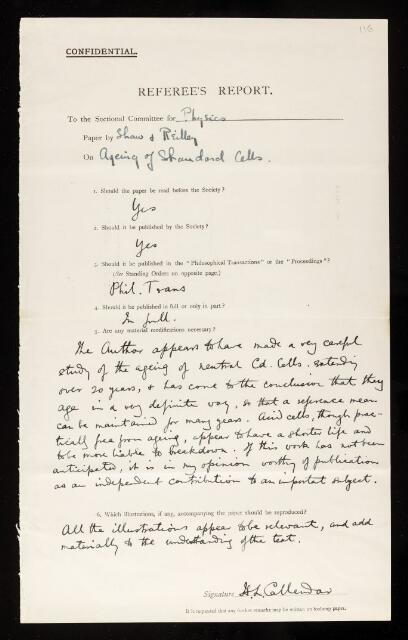 116
CONFIDENTIAL.
REFEREE'S REPORT.
To the Sectional Committee for Physics
Paper by Shaw & Reilley
On Ageing of Standard Cells.
1. Should the paper be read before the Society?
Yes
2. Should it be published by the Society?
Yes
3. Should it be published in the "Philosophical Transactions" or the "Proceedings"?
(See Standing Orders on opposite page.)
Phil. Trans
4. Should it be published in full or only in part?
In full.
5. Are any material modifications necessary?
The Author appears to have made a very careful
study of the ageing of neutral Cd. Cells. extending
over 20 years, & has come to the conclusion that they
age in a very definite way, so that a reference mean
can be maintained for many years. Acid cells, though prac-
tically free from ageing, appear to have a shorter life and
to be more liable to breakdown. If this work has not been
anticipated, it is in my opinion worthy of publication
as an independent contribution to an important subject.
6. Which illustrations, if any, accompanying the paper should be reproduced?
All the illustrations appear to be relevant, and add
materially to the understanding of the text.
Signature H L Callendar
It is requested that any further remarks may be written on foolscap paper.